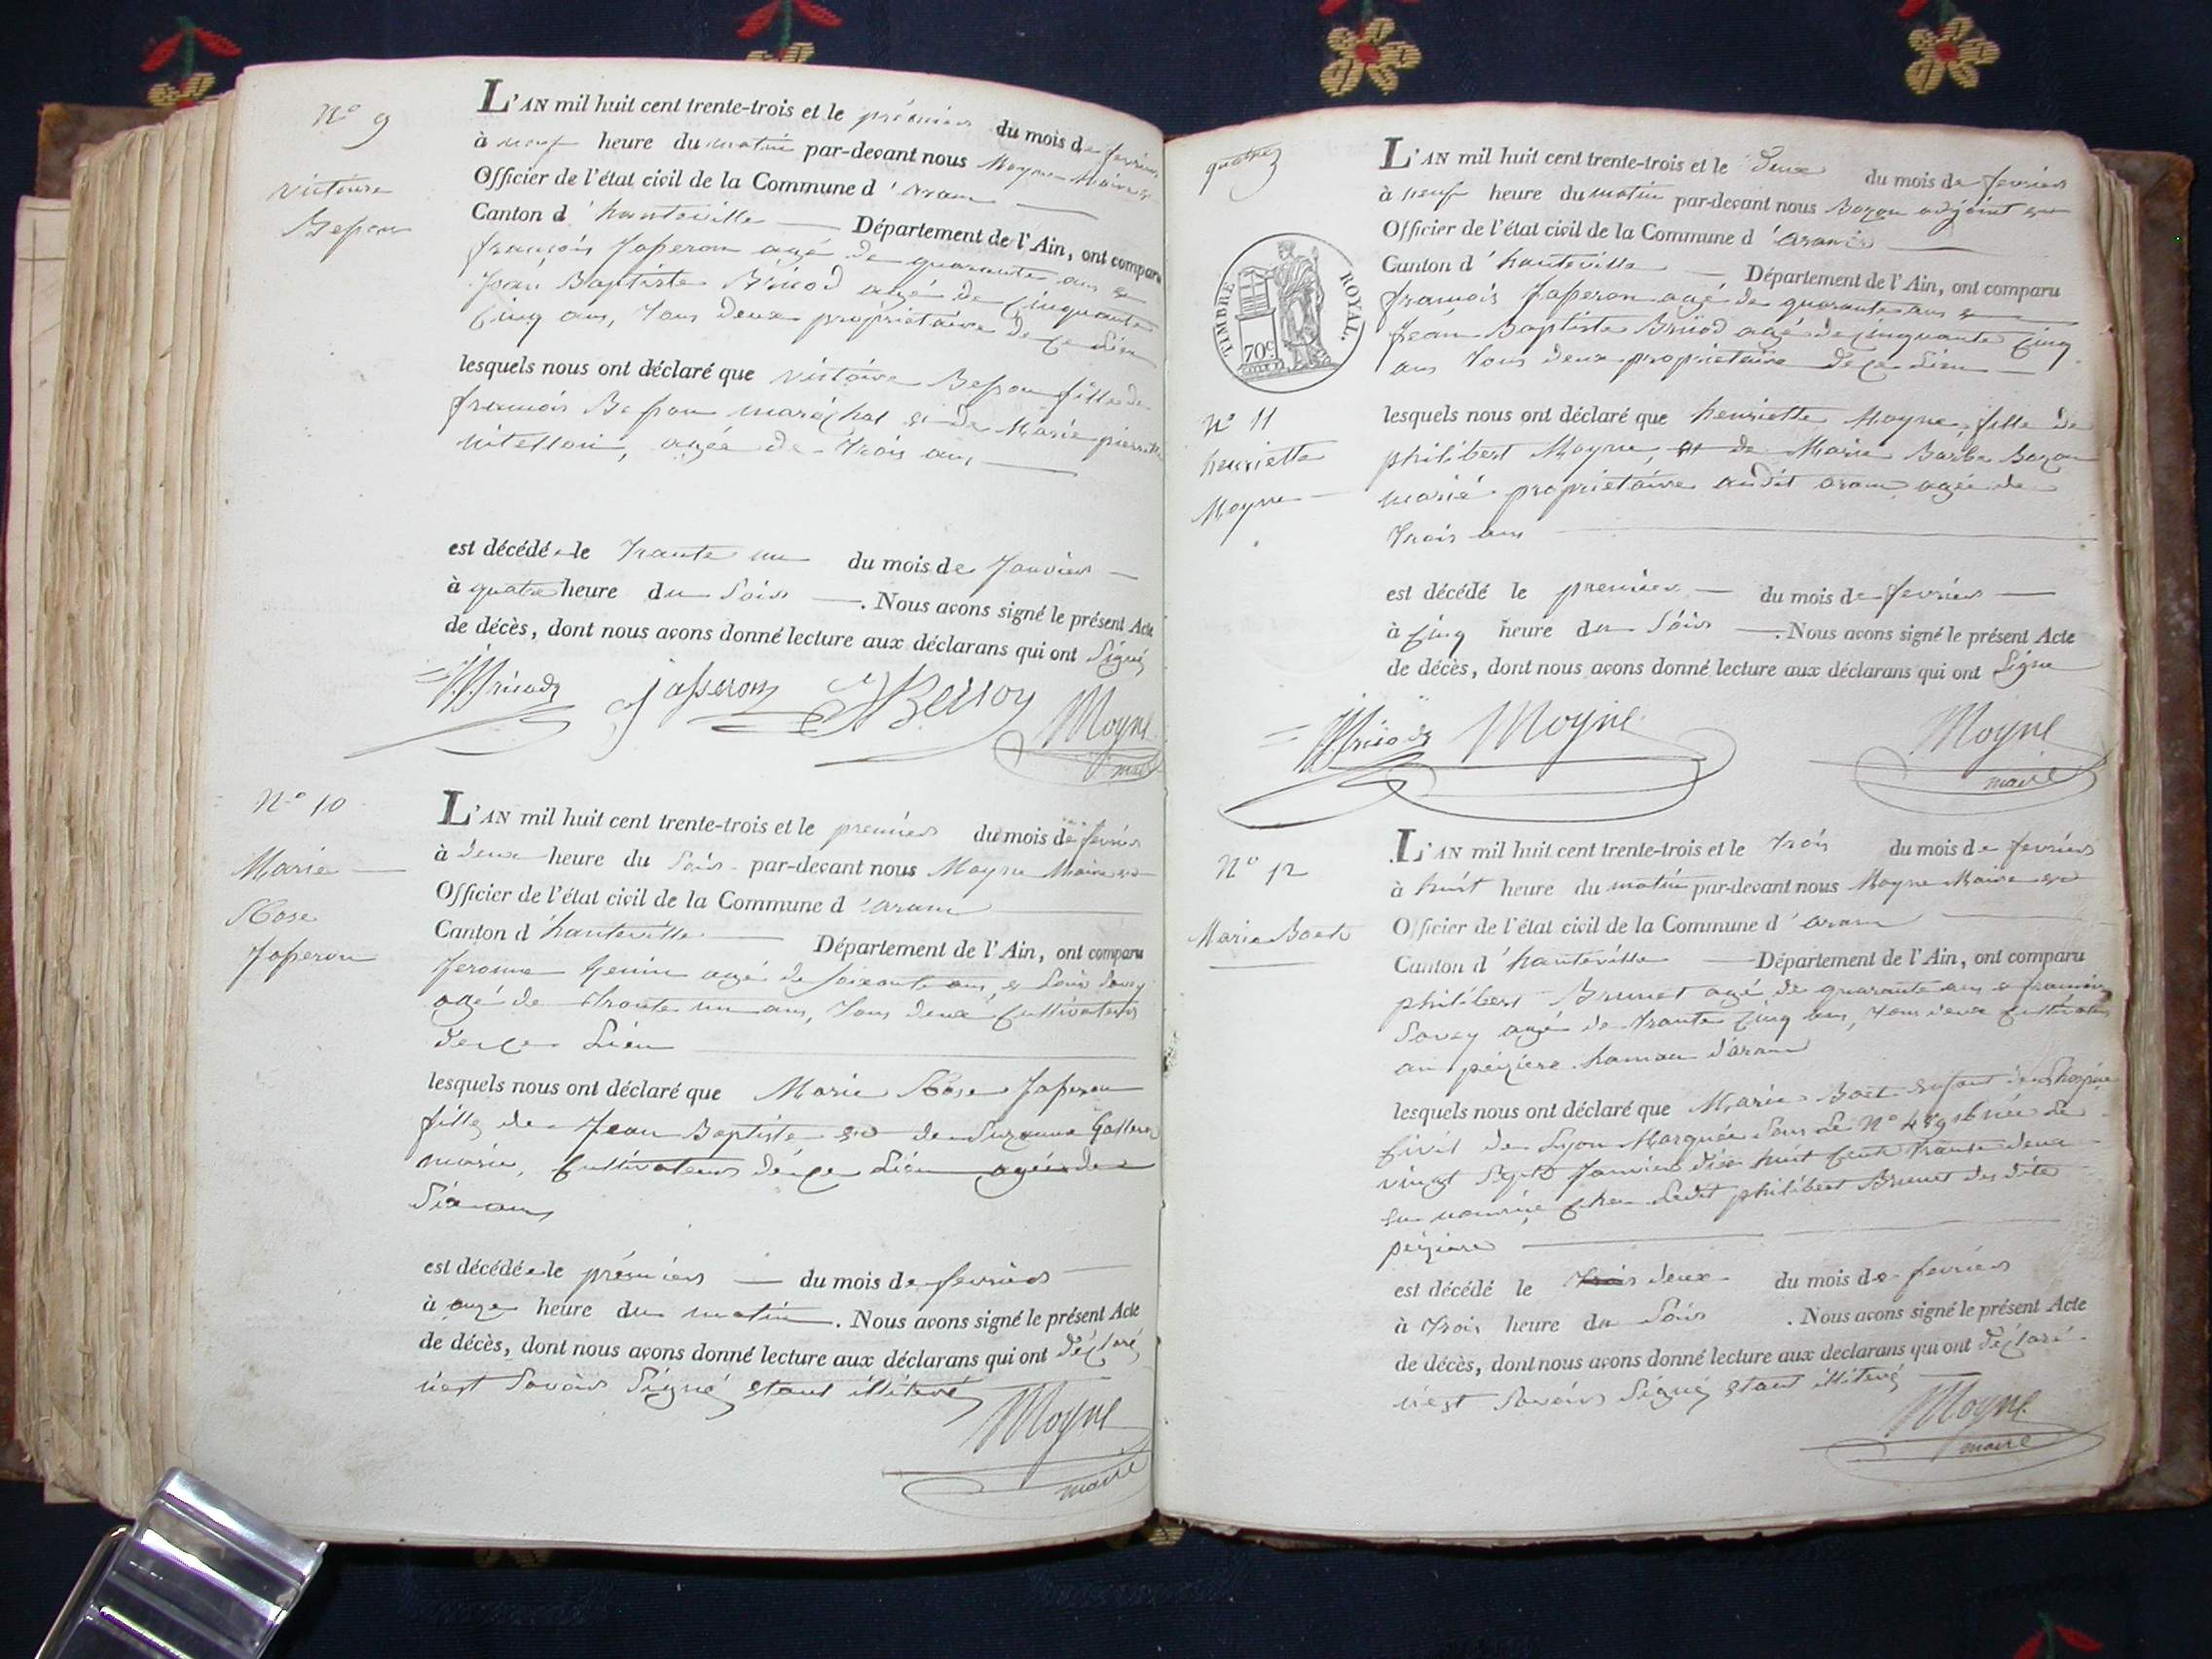 N° 9
victoire
Besson
L'AN mil huit cent trente-trois et le prémier du mois de fevrier
à neuf heure du matin par-devant nous Moyne Maire et
Officier de l'état civil de la Commune d'aranc
Canton d'hauteville Département de l'Ain, ont comparu
françois Jasseron agé de quarante ans et
Jean Baptiste Bricod agé de cinquante
cinq ans, tous deux propriétaire de ce Lieu
lesquels nous ont déclaré que victoire Besson fille de
francois Besson maréchal et de Marie pierrette
agée de trois ans
est décédée le trante un du mois de Janvier
à quatre heure du Soir. Nous avons signé le présent Acte
de décès, dont nous avons donné lecture aux déclarans qui ont Signé
Jasseron Besson Moyne
maire
N° 10
Marie
Rose
Jasseron
L'AN mil huit cent trente-trois et le premier du mois de fevrier
à deux heure du Soir par-devant nous Moyne Maire et
Officier de l'état civil de la Commune d'aranc
Canton d'hauteville Département de l'Ain, ont comparu
Jerome Genin agé de soixante ans, et Louis Savey
agé de trante un ans, tous deux cultivateurs
de ce Lieu
lesquels nous ont déclaré que Marie Rose Jasseron
fille de Jean Baptiste et de Suzanne
marié, cultivateurs de ce Lieu agée de
Six ans
est décédée le prémier du mois de fevrier
à onze heure du matin. Nous avons signé le présent Acte
de décès, dont nous avons donné lecture aux déclarans qui ont déclaré
n'est Savoir Signé etant illiteré
Moyne
maire
quatre
TIMBRE ROYAL.
70c
L'AN mil huit cent trente-trois et le deux du mois de fevrier
à neuf heure du matin par-devant nous Bozon adjoint et
Officier de l'état civil de la Commune d'aranc
Canton d'hauteville Département de l'Ain, ont comparu
francois Jasseron agé de quarante ans et
Jean Baptiste Bricod agé de cinquante cinq
ans tous deux proprietaire de ce Lieu
N° 11
henriette
Moyne
lesquels nous ont déclaré que henriette Moyne, fille de
philibert Moyne, et de Marie Barbe Bozon
marié proprietaire audit aranc agée de
trois ans
est décédé le premier du mois de fevrier
à cinq heure du Soir. Nous avons signé le présent Acte
de décès, dont nous avons donné lecture aux déclarans qui ont Signé
Moyne Moyne
maire
N° 12
Marie Boet
L'AN mil huit cent trente-trois et le trois du mois de fevrier
à huit heure du matin par-devant nous Moyne Maire et
Officier de l'état civil de la Commune d'aranc
Canton d'hauteville Département de l'Ain, ont comparu
philibert Brunet agé de quarante ans et francois
Savey agé de trante cinq ans, tous deux cultivateur
au pézière hamau d'aranc
lesquels nous ont déclaré que Marie Boet enfant de Lhospice
civil de Lyon Marquée Sous Le N° née Le
vingt Sept Janvier dix huit cent trante deux
en nourrice chez Ledit philibert Brunet des dite
pézière
est décédé le trois deux du mois de fevrier
à trois heure du Soir. Nous avons signé le présent Acte
de décès, dont nous avons donné lecture aux déclarans qui ont déclaré
n'est Savoir Signé etant illiteré
Moyne
maire